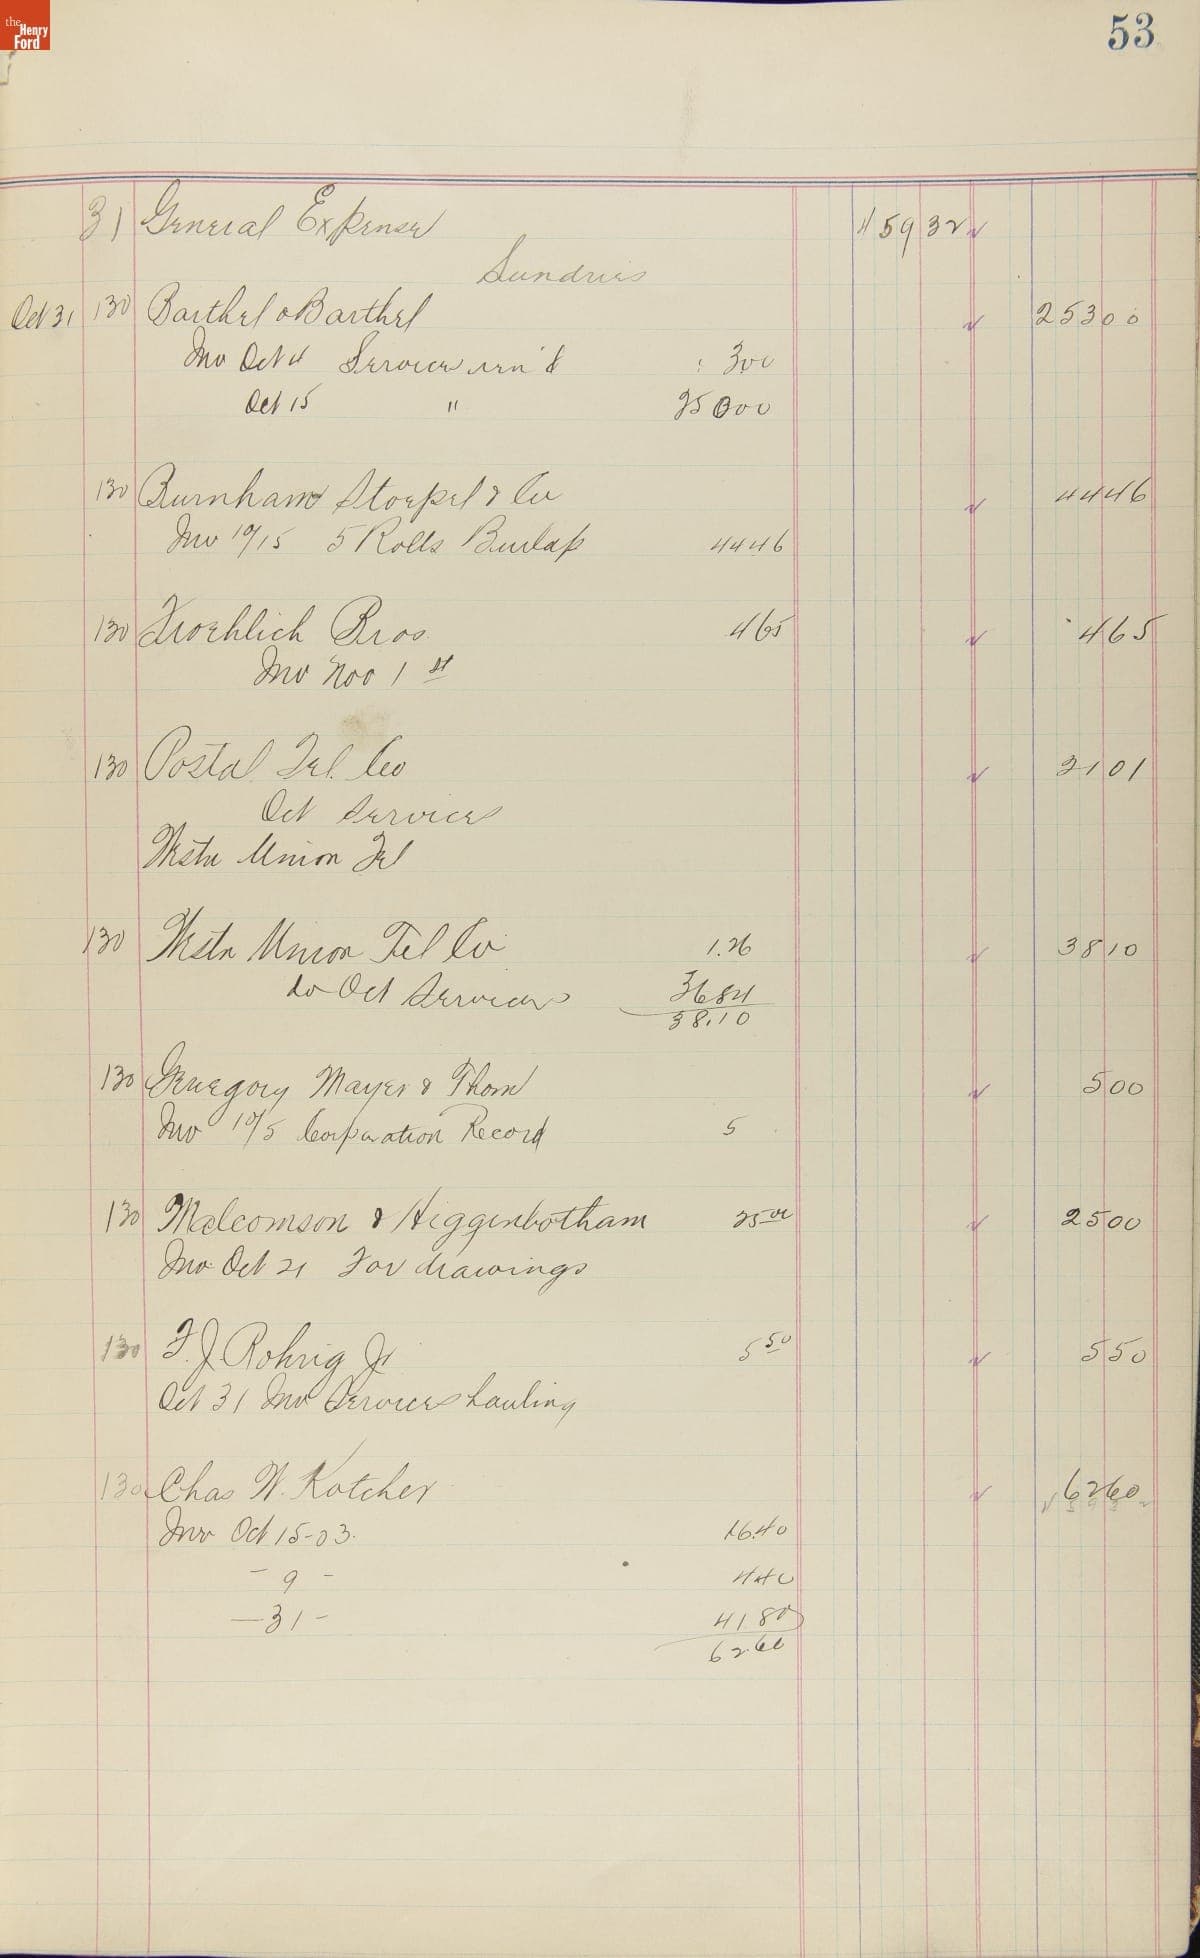 the Henry Ford
53
31 General Expense 459 32
Sundries
Oct 31 130 Barthel & Barthel 253 00
Inv Oct 4 Services ren'd 3 00
Oct 15 " 250 00
130 Burnham Stoepel & Co 44 46
Inv 10/15 5 Rolls Burlap 44 46
130 Froehlich Bros. 4 65 4 65
Inv Nov 1st
130 Postal Tel. Co 21 01
Oct Services
Westn Union Tel
130 Westn Union Tel Co 1.26 38 10
do Oct Services 36 84
38.10
130 Gregory Mayer & Thom 5 00
Inv 10/5 Corporation Record 5
130 Malcomson & Higgenbotham 25 00 25 00
Inv Oct 21 For drawings
130 F. J. Rohrig Jr 5 50 5 50
Oct 31 Inv Services hauling
130 Chas W. Kotcher 62 60
Inv Oct 15-03. 16.40
- 9 - 4 40
- 31 - 41.80
62.60